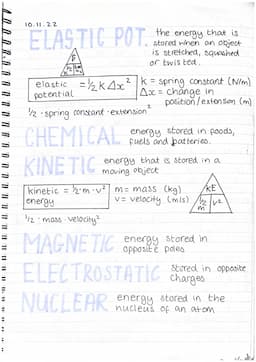 10.11.22
ELASTIC POT. the energy that is
stored when an object
is stretched, squashed
or twisted.
elastic potential = ½ k Δx²
k = spring constant (N/m)
Δx = change in
position/extension (m)
½ · spring constant · extension²
CHEMICAL energy stored in foods,
fuels and batteries.
KINETIC energy that is stored in a
moving object
kinetic energy = ½ · m · v²
m = mass (kg)
v = velocity (m/s)
KE
½ m v²
½ · mass · velocity²
MAGNETIC energy stored in
opposite poles
ELECTROSTATIC stored in opposite
charges
NUCLEAR energy stored in the
nucleus of an atom